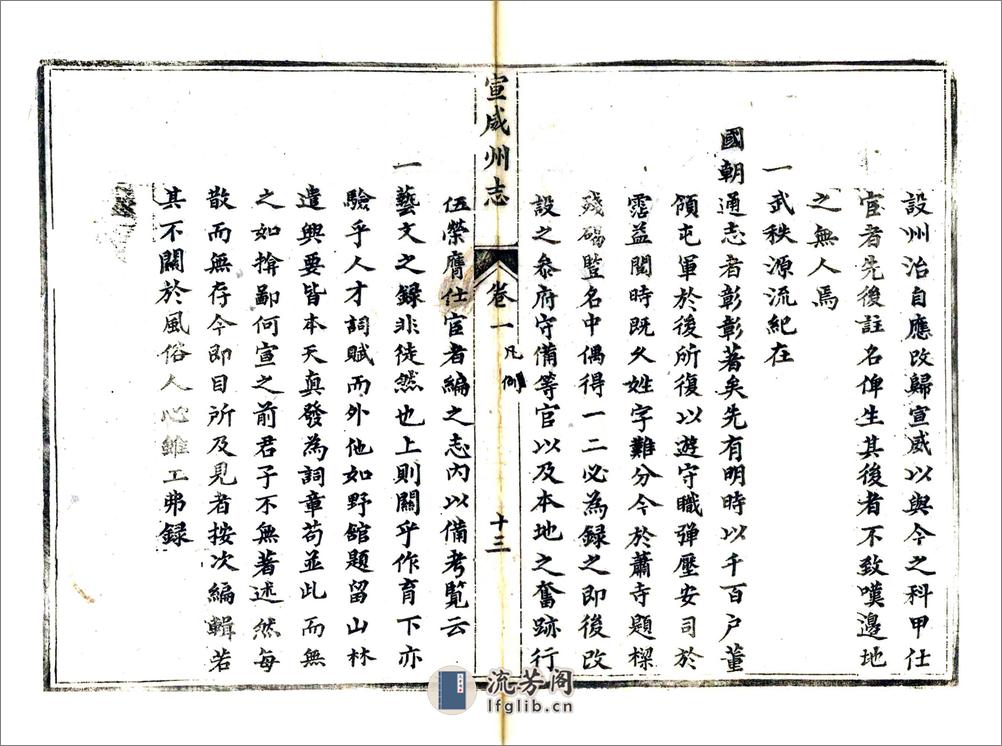 設州治自應改歸宣威以與今之科甲仕
宦者先後註名俾生其後者不致嘆邊地
之無人焉
一武秩源流紀在
國朝通志者彰彰著矣先有明時以千百户董
領屯軍於後所復以遊守職彈壓安司於
霑益閱時既久姓字難分今於蕭寺題樑
殘碣豎名中偶得一二必為録之即後改
設之叅府守備等官以及本地之奮跡行
宣威州志
卷一
凡例
十三
伍榮膺仕宦者編之志內以備考覧云
一藝文之録非徒然也上則關乎作育下亦
驗乎人才詞賦而外他如野館題留山林
遣興要皆本天真發為詞章苟並此而無
之如揜鄙何宣之前君子不無著述然每
散而無存今即目所及見者按次編輯若
其不關於風俗人心雖工弗録
流芳阁
lfglib.cn